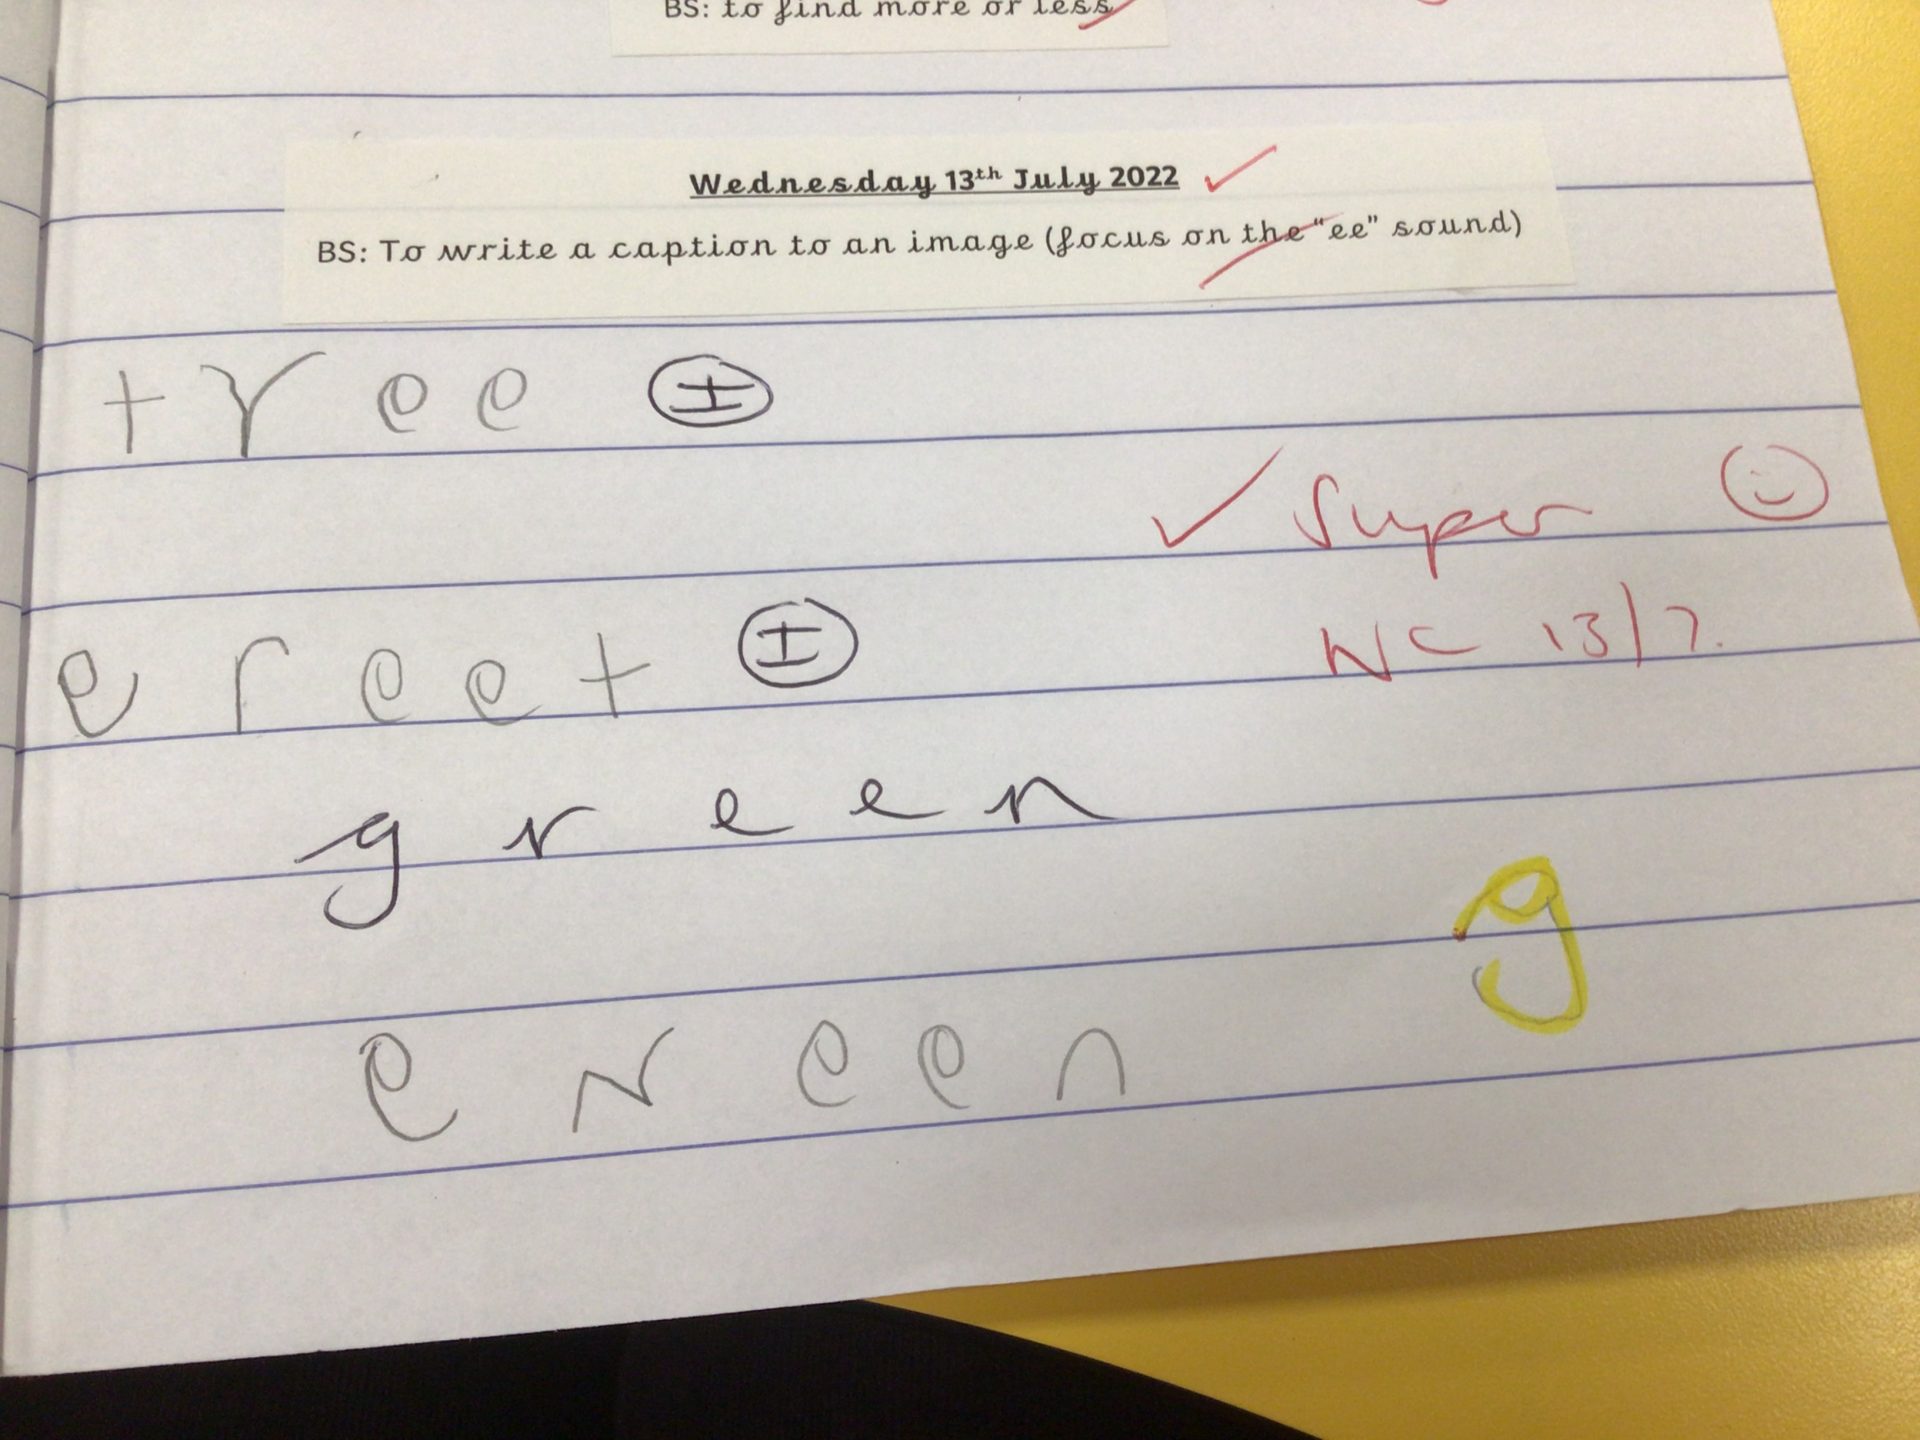 BS: to find more or less
Wednesday 13th July 2022
BS: To write a caption to an image (focus on the "ee" sound)
tree I
Super
ereet I
NC 13/7.
green
g
ereen